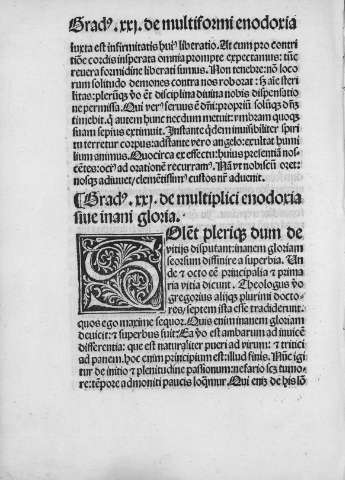 Gradꝰ. xxj. de multiformi enodoxia
iuxta est infirmitatis huiꝰ liberatio. At cum pro contri
tiōe cordis insperata omnia prompte expectamus: tūc
reuera formidine liberati sumus. Non tenebre: nō loco
rum solitudo demones contra nos roborat: sȝ aīe steri
litas: plerūqȝ v̄o et disciplina diuina nobis dispensatio
ne permissa. Qui verꝰ seruus ē dn̄i: propriū solūqȝ dn̄ȝ
timebit. q̄ autem hunc necdum metuit: vmbram quoqȝ
suam sepius extimuit. Instante q̄dem inuisibiliter spiri
tu terretur corpus: adstante vero angelo: exultat humil
lium animus. Quocirca ex effectu: huius presentiā nos
cētes: ocēꝰ ad orationē recurramꝰ. Nā vt nobiscū oret:
nosqȝ adiuuet, clemētissimꝰ custos nr̄ aduenit.
¶ Gradꝰ. xxj. de multiplici enodoxia
siue inani gloria.
Solēt pleriqȝ dum de
vitijs disputant: inanem gloriam
seorsum diffinire a superbia. Un
de ⁊ octo eē principalia ⁊ prima
ria vitia dicunt. Theologus v̄o
gregorius alijqȝ plurimi docto-
ros, septem ista esse tradiderunt.
quos ego maxime sequor. Quis enim inanem gloriam
deuicit: ⁊ superbus fuit: Ea v̄o est ambarum adinuicē
differentia: que est naturaliter pueri ad virum: ⁊ tritici
ad panem. hoc enim principium est: illud finis. Nūc igi
tur de initio ⁊ plenitudine passionum: nefario scȝ tumo-
re: tēpore admoniti paucis loq̄mur. Qui eniȝ de his lō